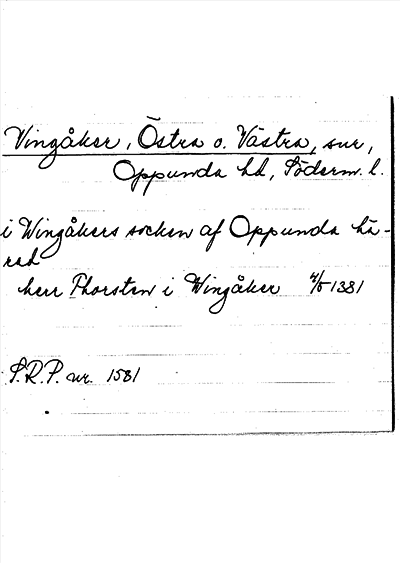 Vingåker, Östra o. Västra, snr,
Oppunda hd, Söderm. l.
i Wingåkers socken af Oppunda hä-
rad
herr Thorsten i Wingåker 4/5 1381
S.R.P. nr. 1581